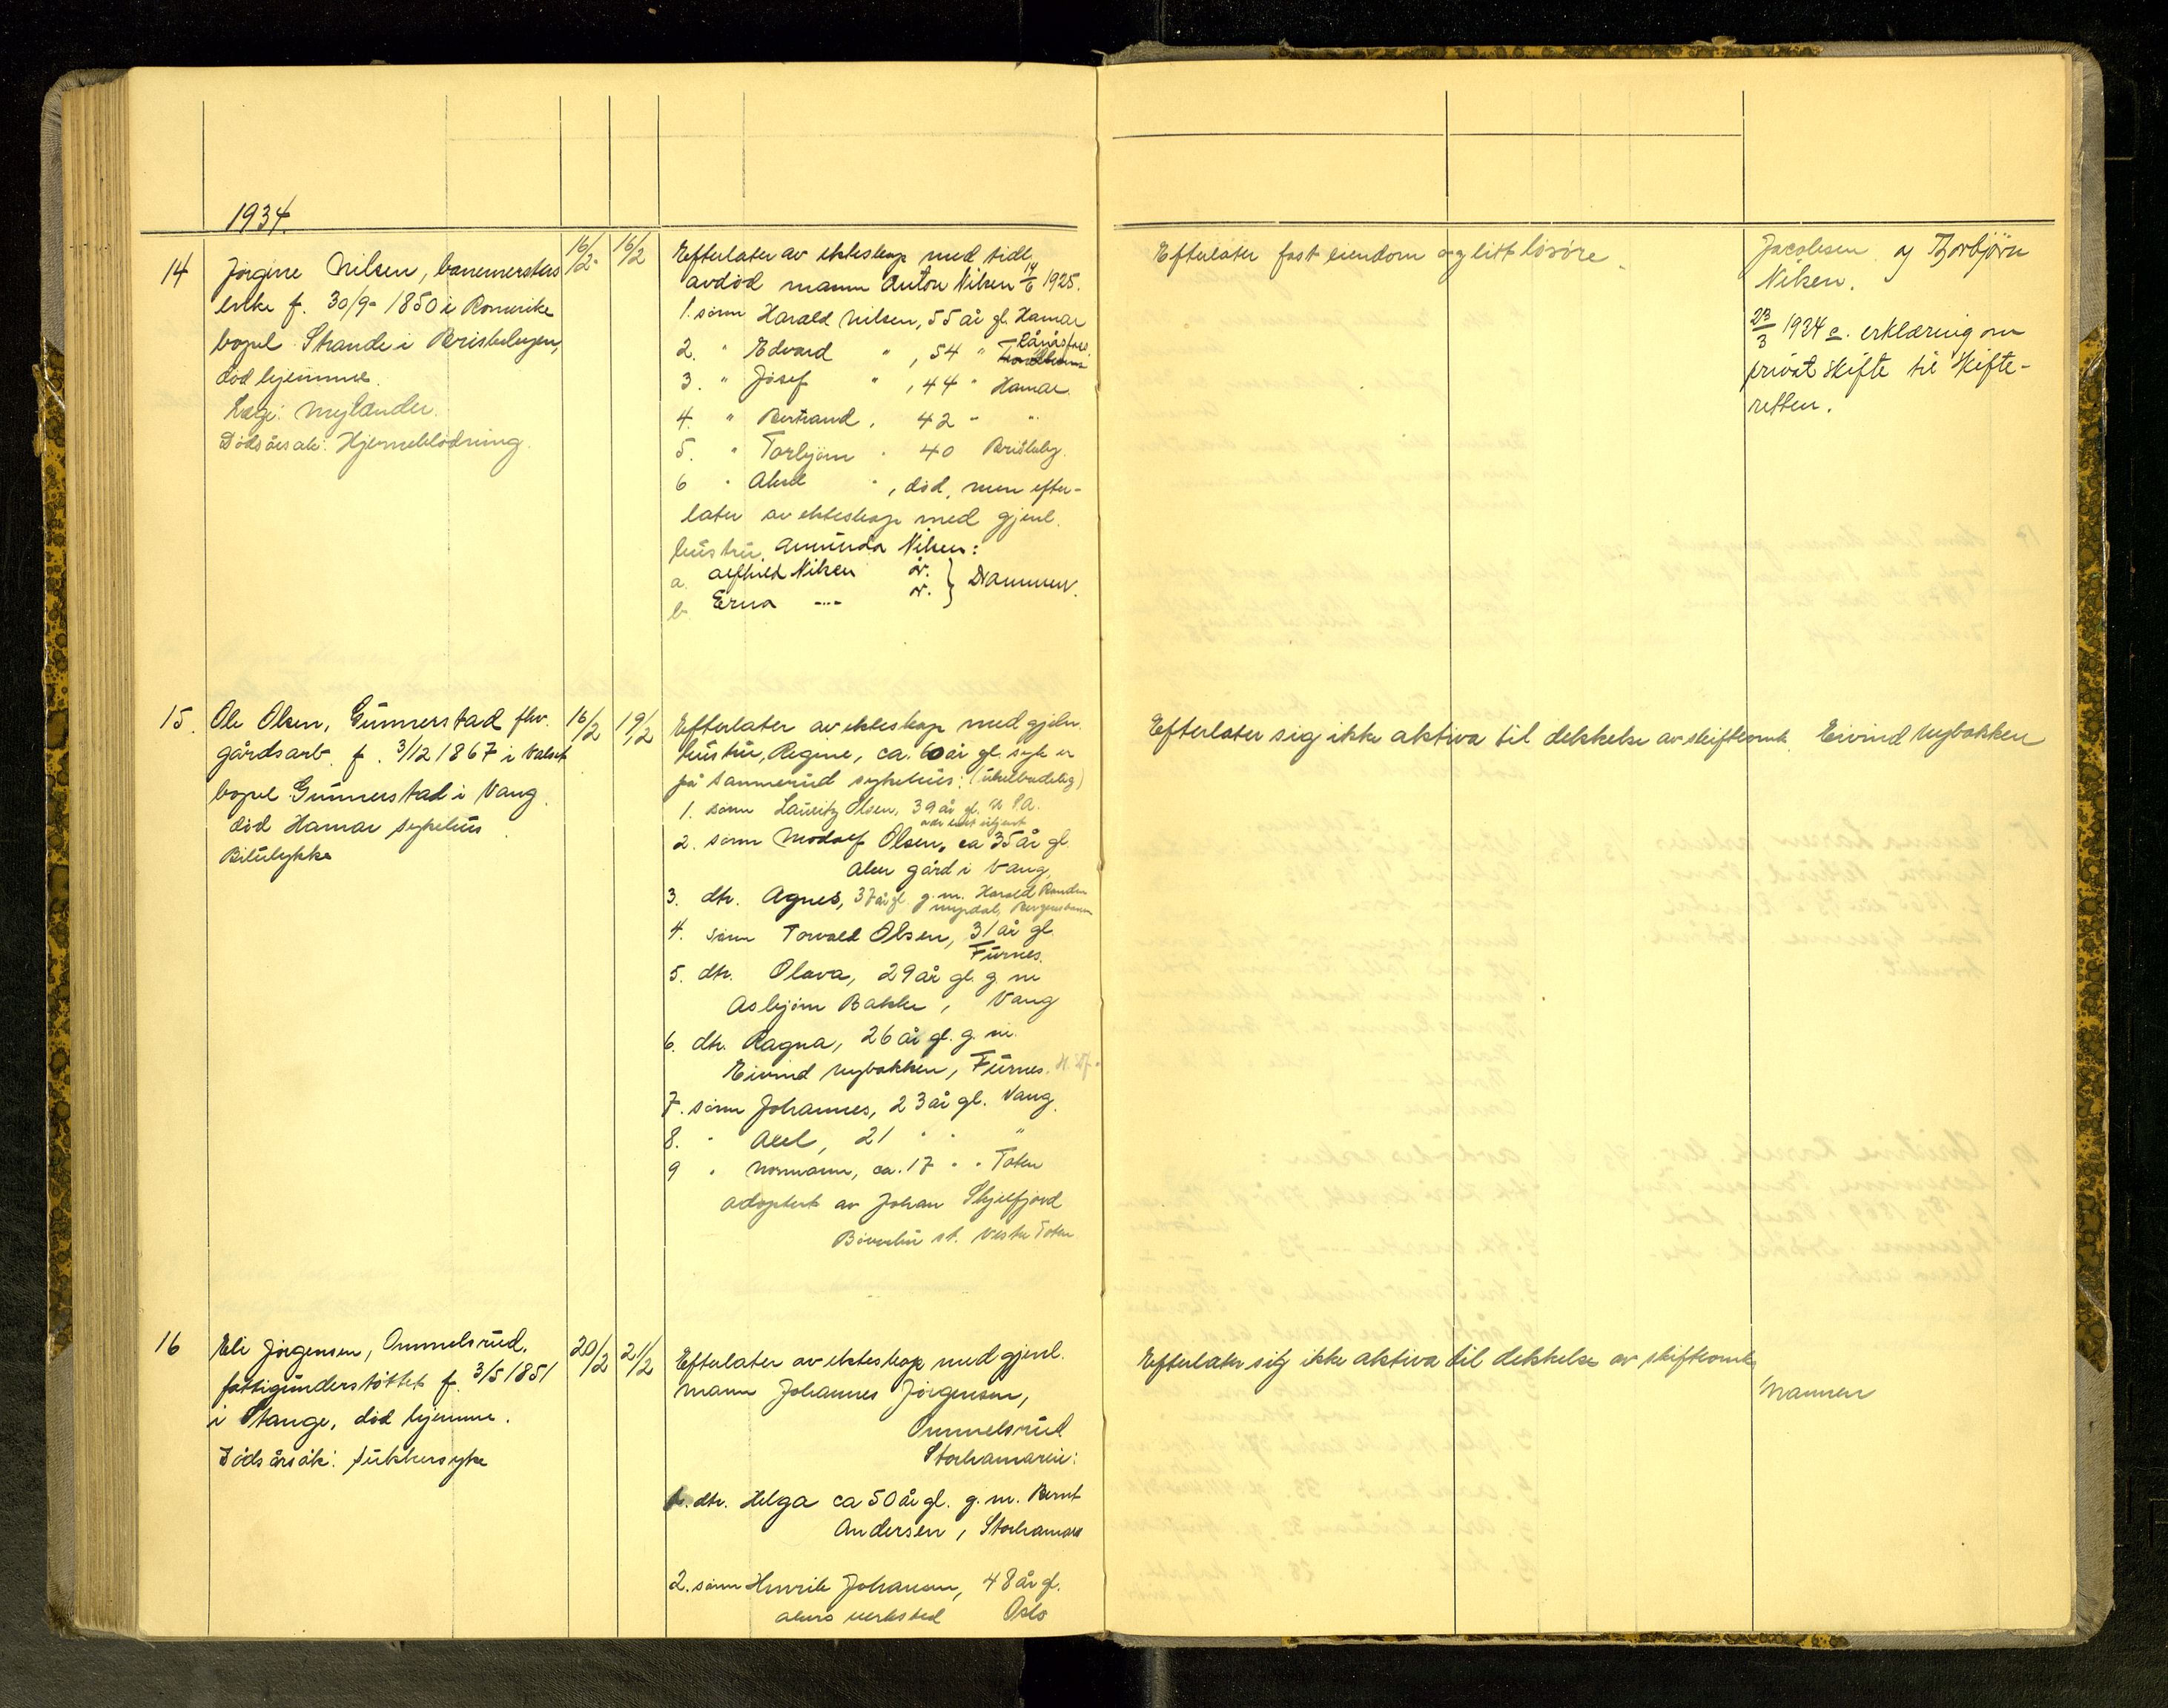 1934.
14
Jörgine Nilsen, banemesters
enke f. 30/9-1850 i Romerike
bopel Strande i Briskebyen,
död hjemme.
Læge: Mylander.
Dödsårsak: Hjerneblödning.
16/2
16/2
Efterlater av ekteskap med tidl.
avdöd mann Anton Nilsen 14/6 1925.
1. sönn Harald Nilsen, 55 år gl. Hamar
2. " Edvard " , 54 " Rånåsfoss
3. " Josef " , 44 " Hamar
4. " Bertrand , 42 " "
5. " Torbjörn " 40 Briskeby.
6 " Aksel " , död, men efter-
later av ekteskap med gjenl.
hustru, Amunda Nilsen:
a. Alfhild Nilsen år. } Drammen.
b. Erna --- år.
Efterlater fast eiendom og litt lösöre.
Jacobsen og Thorbjörn
Nilsen.
23/3 1934 e. erklæring om
privat skifte til Skifte-
retten.
15.
Ole Olsen, Gunnerstad fhv.
gårdsarb. f. 3/12 1867 i Valset
bopel Gunnerstad i Vang.
död Hamar sykehus.
Bilulykke
16/2
19/2
Efterlater av ekteskap med gjenl.
hustru, Regine, ca. 60 år gl. syk er
på Sannerud sykehus: (ukurbedelig)
1. sönn Lauritz Olsen, 39 år gl. U.S.A.
adr. ukjent
2. sönn Modolf Olsen, ca 35 år gl
Aker gård i Vang,
3. dtr. Agnes, 37 år gl. g.m. Harald
Mjrdal, Bergensbanen
4. sönn Torvald Olsen, 31 år gl.
Furnes.
5. dtr. Olava, 29 år gl. g. m
Asbjörn Bakke, Vang
6. dtr. Ragna, 26 år gl. g. m.
Eivind Nybakken, Furnes.
7. sönn Johannes, 23 år gl. Vang.
8. " Axel, 21 " " "
9 " Normann, ca. 17 " " Toten
adoptert av Johan Skjelfjord
Böverbru st. Vestre Toten
Efterlater sig ikke aktiva til dekkelse av skifteomk.
Eivind Nybakken
16
Eli Jörgensen, Ommelsrud,
fattigunderstöttet f. 3/5 1851
i Stange, död hjemme.
Dödsårsak: sukkersyke
20/2
21/2
Efterlater av ekteskap med gjenl.
mann Johannes Jörgensen,
Ommelsrud
Storhamarlie:
1. dtr. Helga ca 50 år gl. g.m. Bernt
Andersen, Storhamar
2. sönn Henrik Johansen, 48 år gl.
Akers verksted Oslo
Efterlater sig ikke aktiva til dekkelse av skifteomk.
Mannen